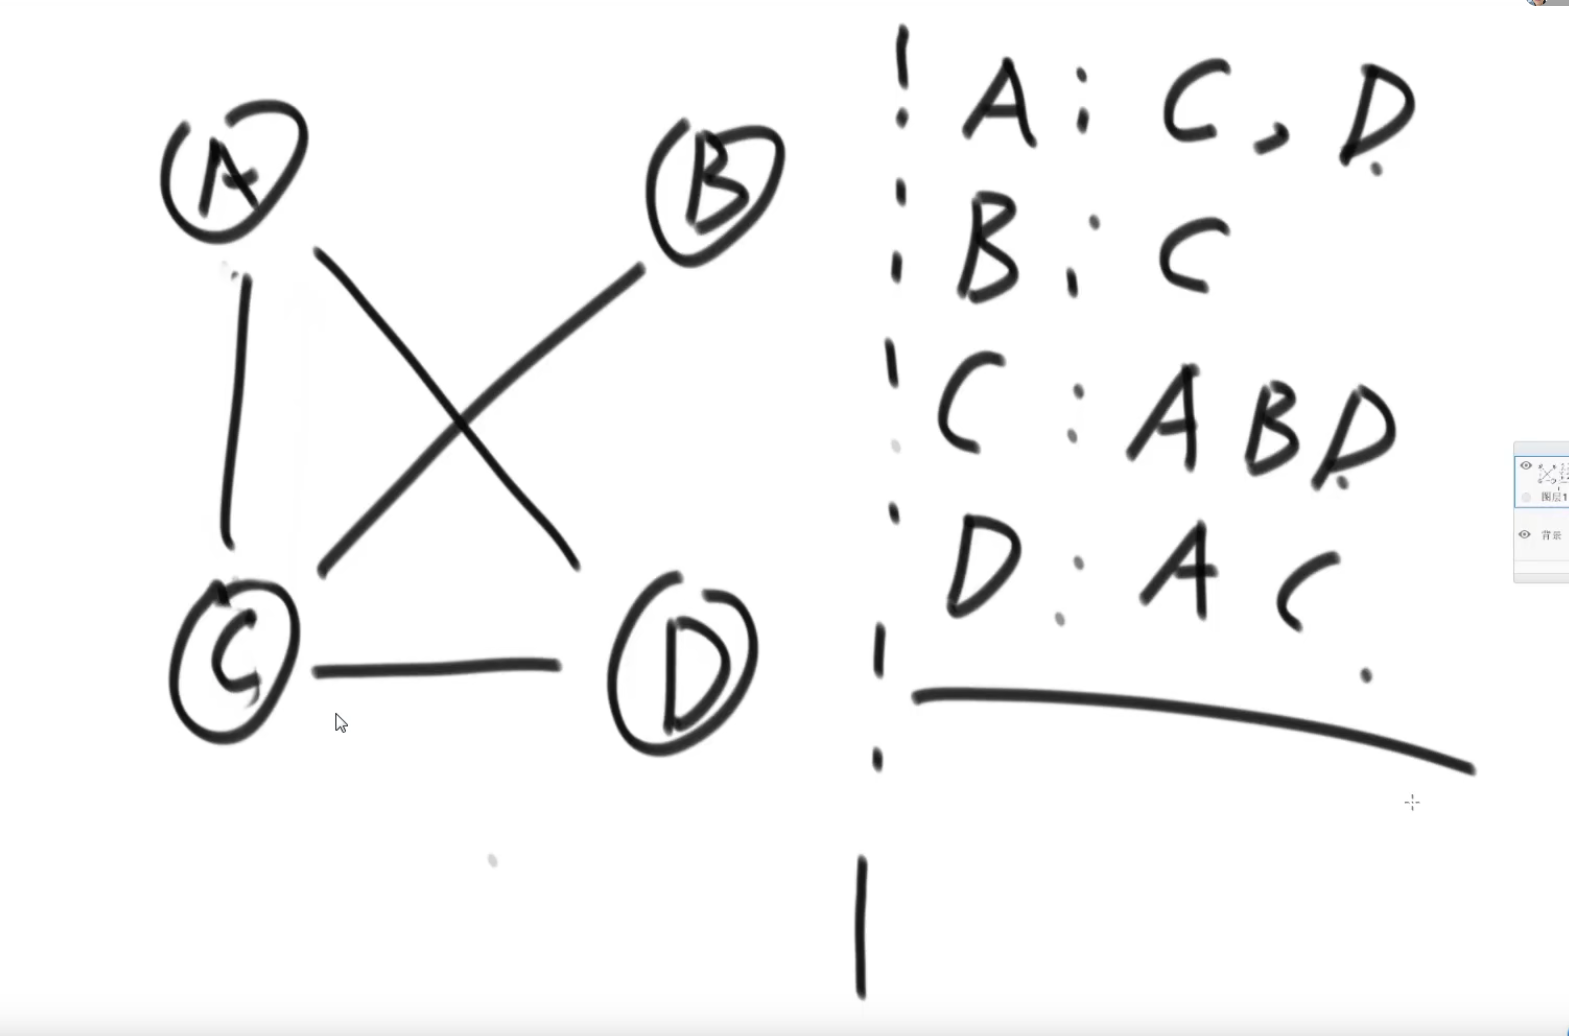 A
B
C
D
A: C, D
B: C
C: A B D
D: A C
图层1
背景